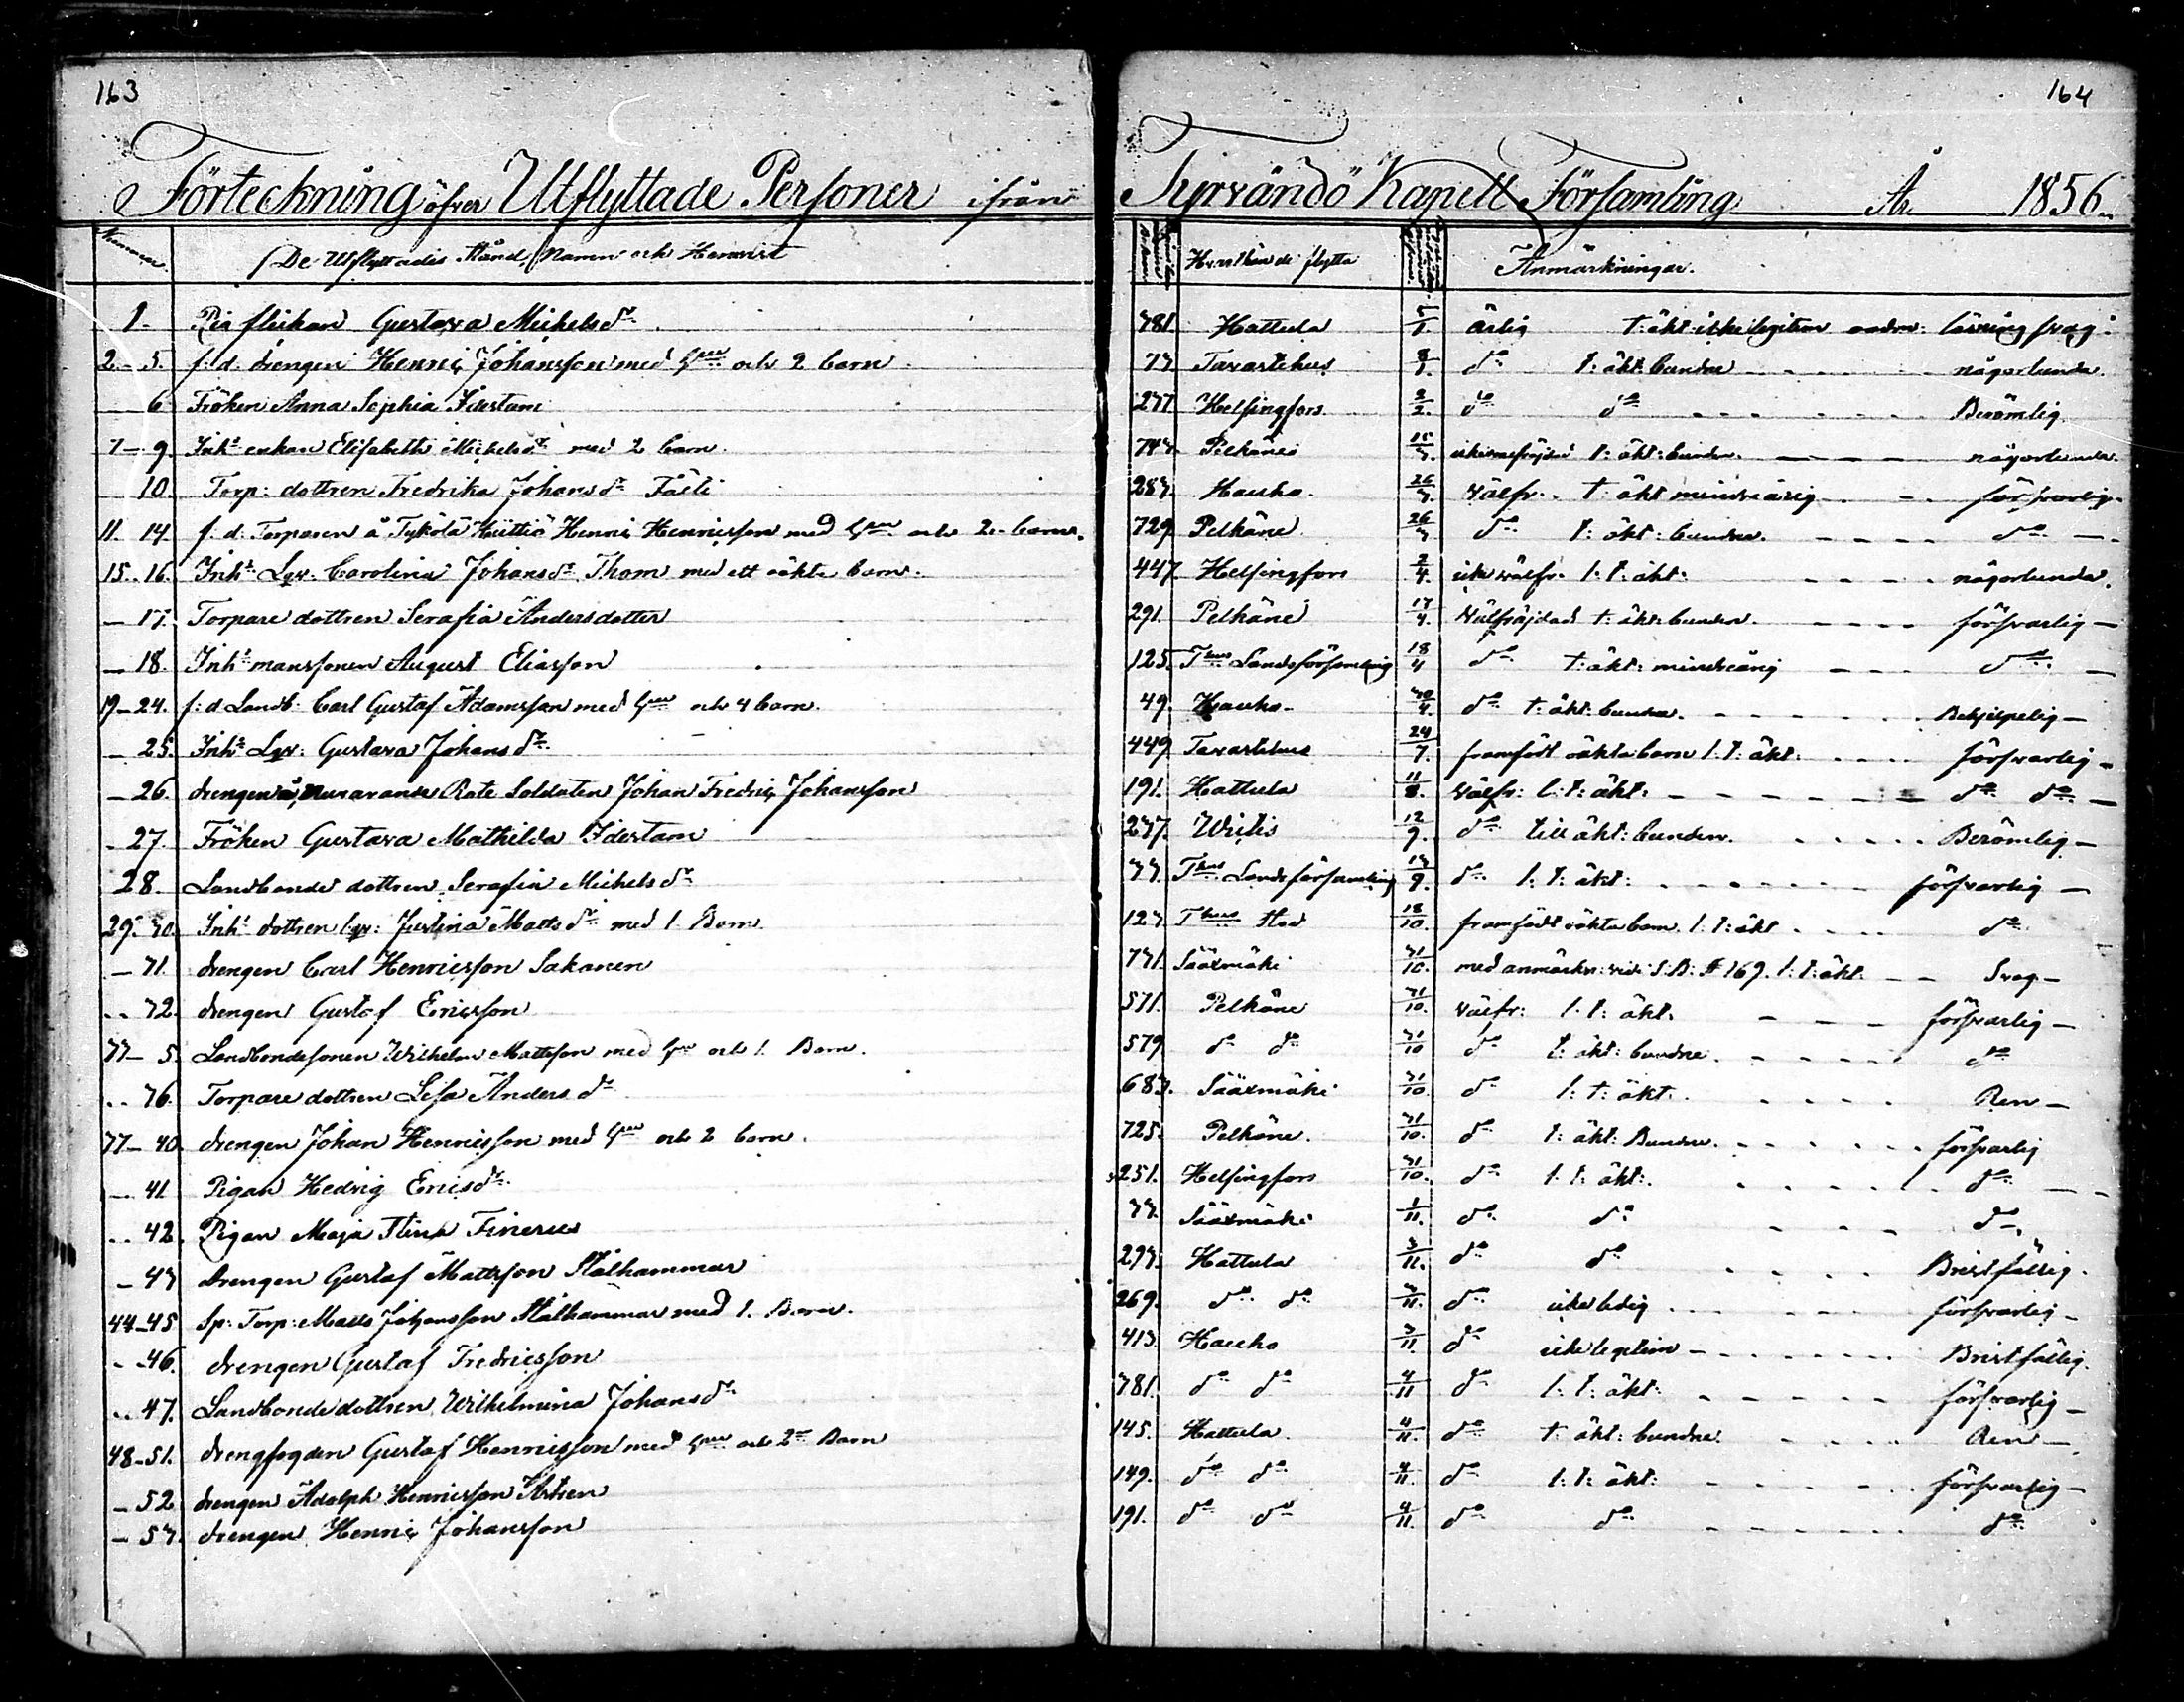 163
164
Förteckning öfver Utflyttade Personer ifrån Tyrvändö Kapell Församling År 1856.
Nummer De Utflyttades Stånd, Namn och Hemvist Hvarthän de flytta Anmärkningar.
1. flickan Gustava Michelsdr 381 Hattula 5/1. ärlig t: äkt: icke legitim läsning svag
2-5. f: d. drengen Henric Johansson med hru och 2 barn 73 Tavastehus 8/1. do t: äkt: bundne någorlunda.
6 Fröken Anna Sophia Idestam 277 Helsingfors 2/2. do do Berömlig
7-9. Inhs enkan Elisabeth Michelsdr med 2 barn. 343 Pelkäne 15/3. t: äkt: bunden. någorlunda.
10. Torp: dottren Fredrika Johansdr Fält 283. Hauho. 26/3. välfr. t: äkt minderårig försvarlig.
11. 14. f: d: Torparen å Tykölä Henric Henricsson med hru och 2 barn. 329 Pelkäne 26/3 do t: äkt: bundne. do
15.-16. Inhs Lqv. Carolina Johansdr Thom med ett oäkta barn. 447 Helsingfors 2/4. icke välfr. l: t: äkt: någorlunda.
17. Torpare dottren Serafia Andersdotter 291. Pelkäne 17/4. välfräjdad t: äkt: bunden. försvarlig
18. Inhs manssonen August Eliasson 125. Thus Landsförsamling 18/4 do t: äkt: minderårig do
19-24. f: d Landb: Carl Gustaf Adamsson med hru och 4 barn. 49. Hauho 30/4. do t: äkt: bundne. Behjelpelig
25. Inhs Lqv: Gustava Johansdr 449 Tavastehus 24/7. framfödt oäkta barn l: t: äkt: försvarlig
26. drengen å, nuvarande Rote Soldaten Johan Fredric Johansson 191. Hattula 11/8. välfr: l: t: äkt: do do
27. Fröken Gustava Mathilda Idestam 237. Wichtis 12/9. do till äkt: bunden. Berömlig
28. Landbonde dottren Serafia Michelsdr 33. Thus Landsförsamling 13/9. do l: t: äkt: försvarlig
29. 30. Inhs dottren lqv: Justina Mattsdr med 1. Barn. 123 Thus Stad 18/10. framfödt oäkta barn. l: t: äkt do
31. drengen Carl Henricsson Sakanen 331 Sääxmäki 31/10. med anmärkn: vide S: B: № 169. l: t: äkt. Svag
32. drengen Gustaf Ericsson 571. Pelkäne 31/10. välfr: l: t: äkt. försvarlig
33-5. Landbondesonen Wilhelm Mattsson med hru och 1. Barn. 579 do do 31/10 do t: äkt: bundne. do
36. Torpare dottren Lisa Andersdr 683. Sääxmäki 31/10. do l: t: äkt. Ren
37-40. drengen Johan Henricsson med hru och 2 barn. 325. Pelkäne. 31/10. do t: äkt: Bundne. försvarlig
41 Pigan Hedvig Ericsdr 251. Helsingfors 31/10. do l: t: äkt. do
42. Pigan Maja Stina Finerus 33. Sääxmäki 1/11. do do do
43 Drengen Gustaf Mattsson Stålhammar 293. Hattula 3/11. do do Bristfällig.
44-45 Sp: Torp: Matts Johansson Stålhammar med 1. Barn. 269. do do 3/11. do icke ledig försvarlig
46. drengen Gustaf Fredricsson 413. Hauho 3/11. do icke legitim Bristfällig.
47. Landbonde dottren Wilhelmina Johansdr 381. do do 4/11 do l: t: äkt. försvarlig
48-51. drengfogden Gustaf Henricsson med hru och 2ne Barn 145. Hattula. 4/11. do t: äkt: bundne. Ren
52 drengen Adolph Henricsson 149. do do 4/11. do l: t: äkt: försvarlig
53. drengen Henric Johansson 191. do do 4/11. do do do